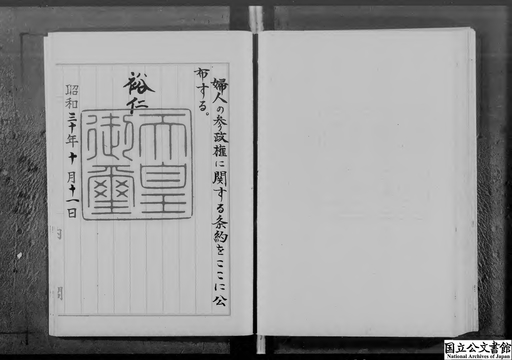 婦人の参政権に関する条約をここに公
布する。
裕仁
天皇御璽
昭和三十年十月十一日
国立公文書館
National Archives of Japan